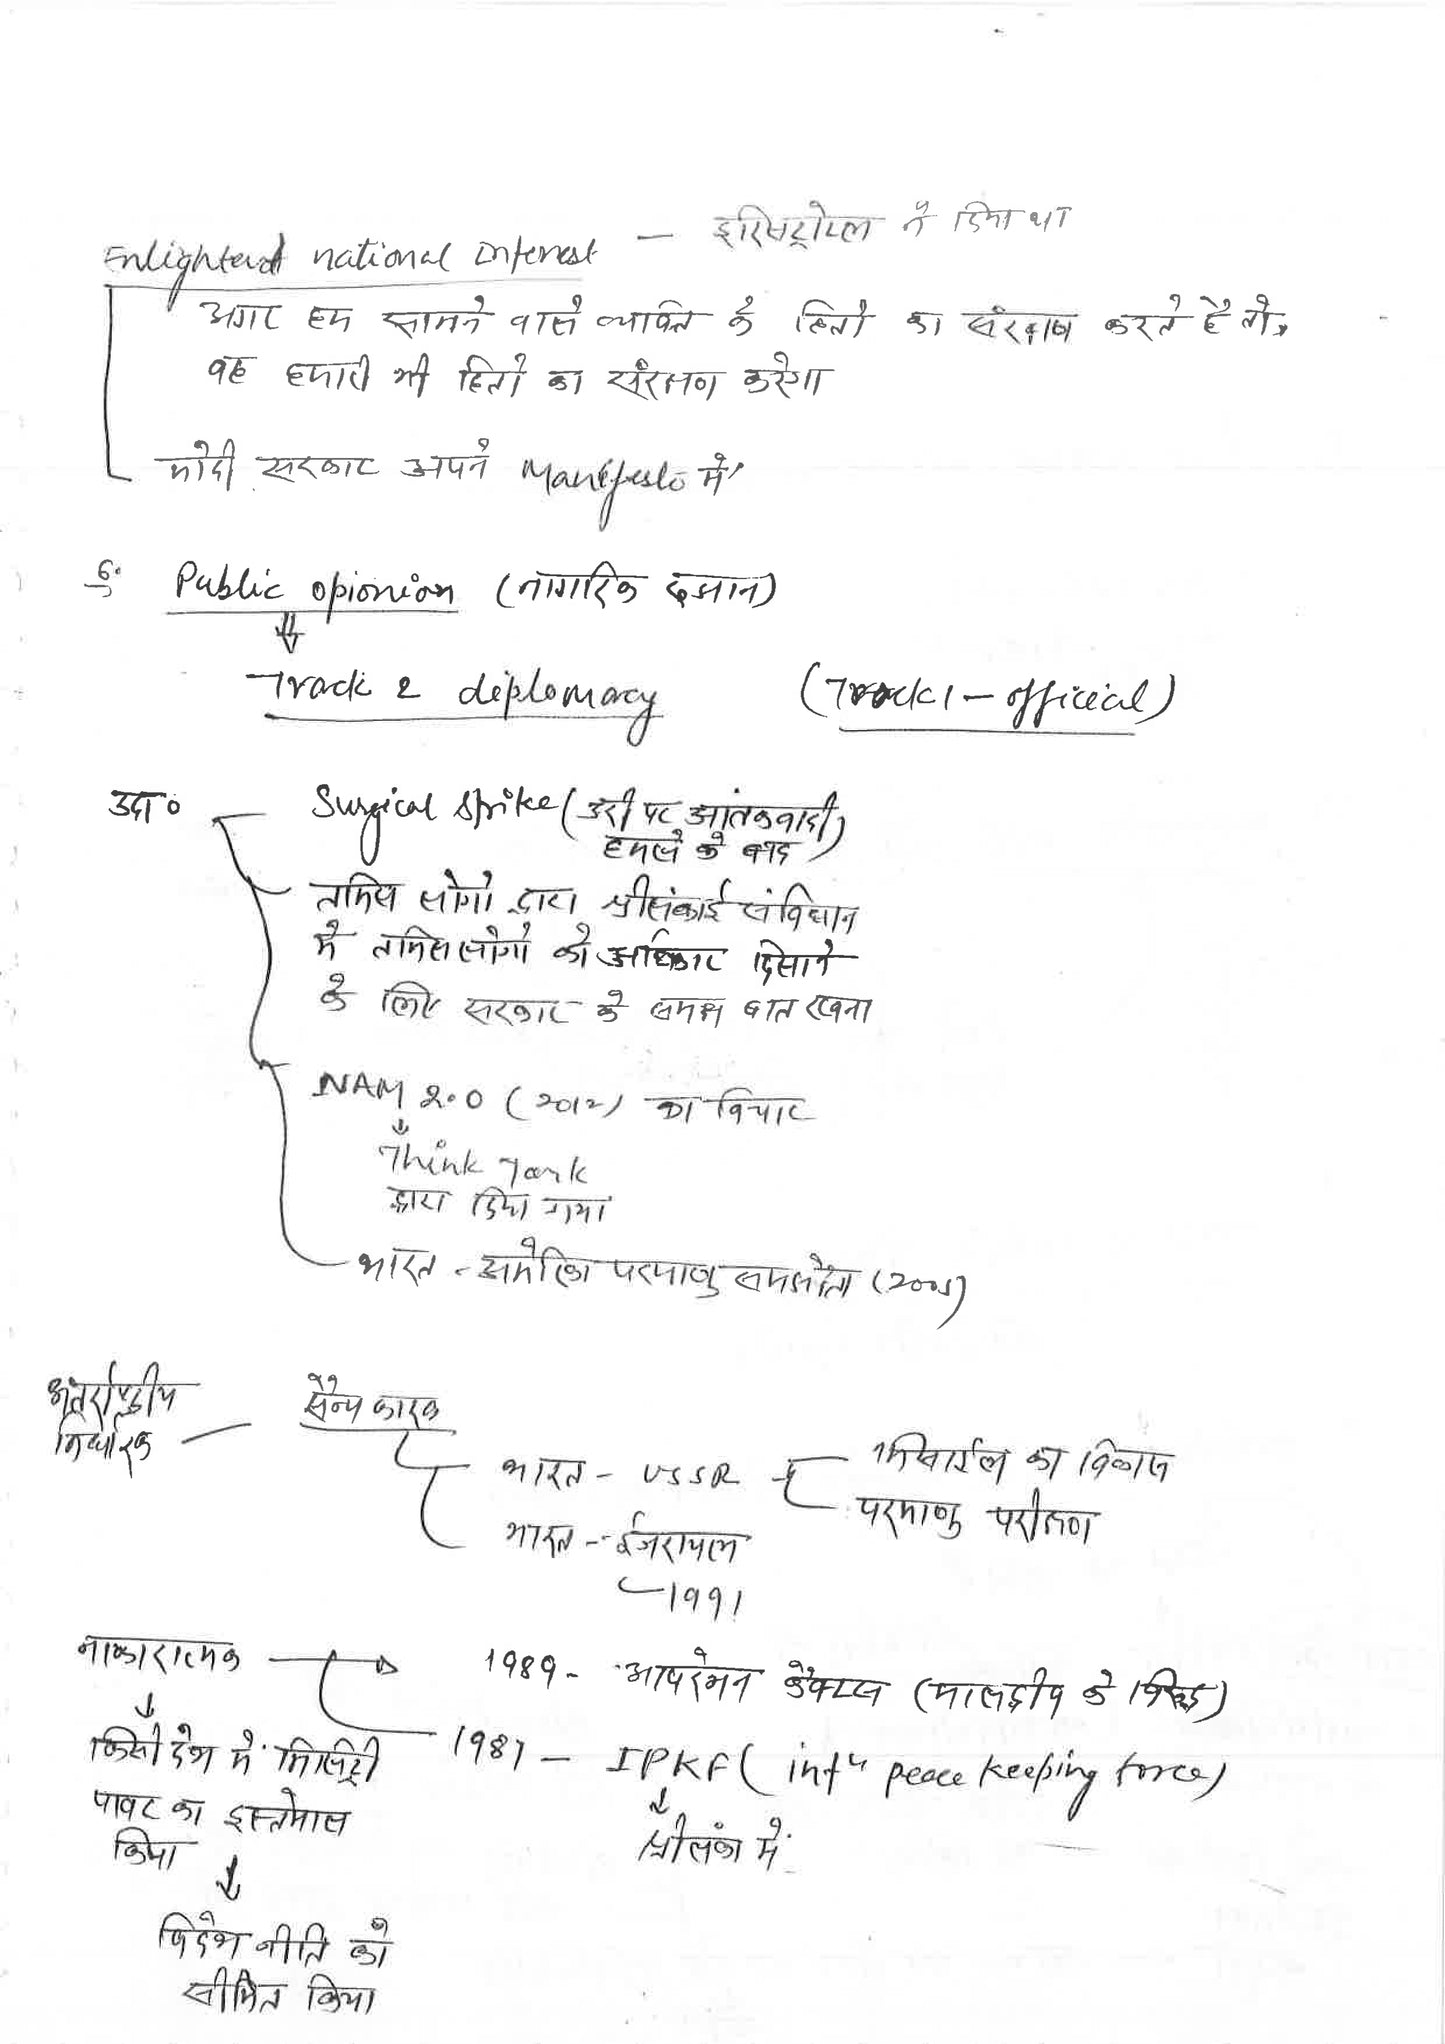 Enlightend national interest — इरिसट्रोटल ने दिया था
अगर हम सामने वाले व्यक्ति के हितो का संरक्षण करते है तो,
वह हमारी भी हितो का संरक्षण करेगा
मोदी सरकार अपने Manifesto में
6. Public opionion (नागरिक रुझान)
Track 2 diplomacy (Track 1 – official)
उदा० Surgical strike (उरी पर आंतकवादी
हमले के बाद)
तमिल लोगो द्वारा श्रीलंकाई संविधान
मे तमिल लोगो को अधिकार दिलाने
के लिए सरकार के समक्ष बात रखना
NAM 2.0 (2012) का विचार
Think Tank
द्वारा दिया गया
भारत - अमेरिका परमाणु समझौता (2005)
अंतर्राष्ट्रीय
निर्धारक — सैन्य कारक
भारत - USSR मिसाईल का विकास
परमाणु परीक्षण
भारत - ईजरायल
1991
नाकारात्मक 1989 - आपरेशन कैक्टस (मालद्वीप के विरुद्ध)
किसी देश मे मिलिट्री 1987 – IPKF (intn peace keeping force)
पावर का इस्तेमाल
किया श्रीलंका में
विदेश नीति को
सीमित किया